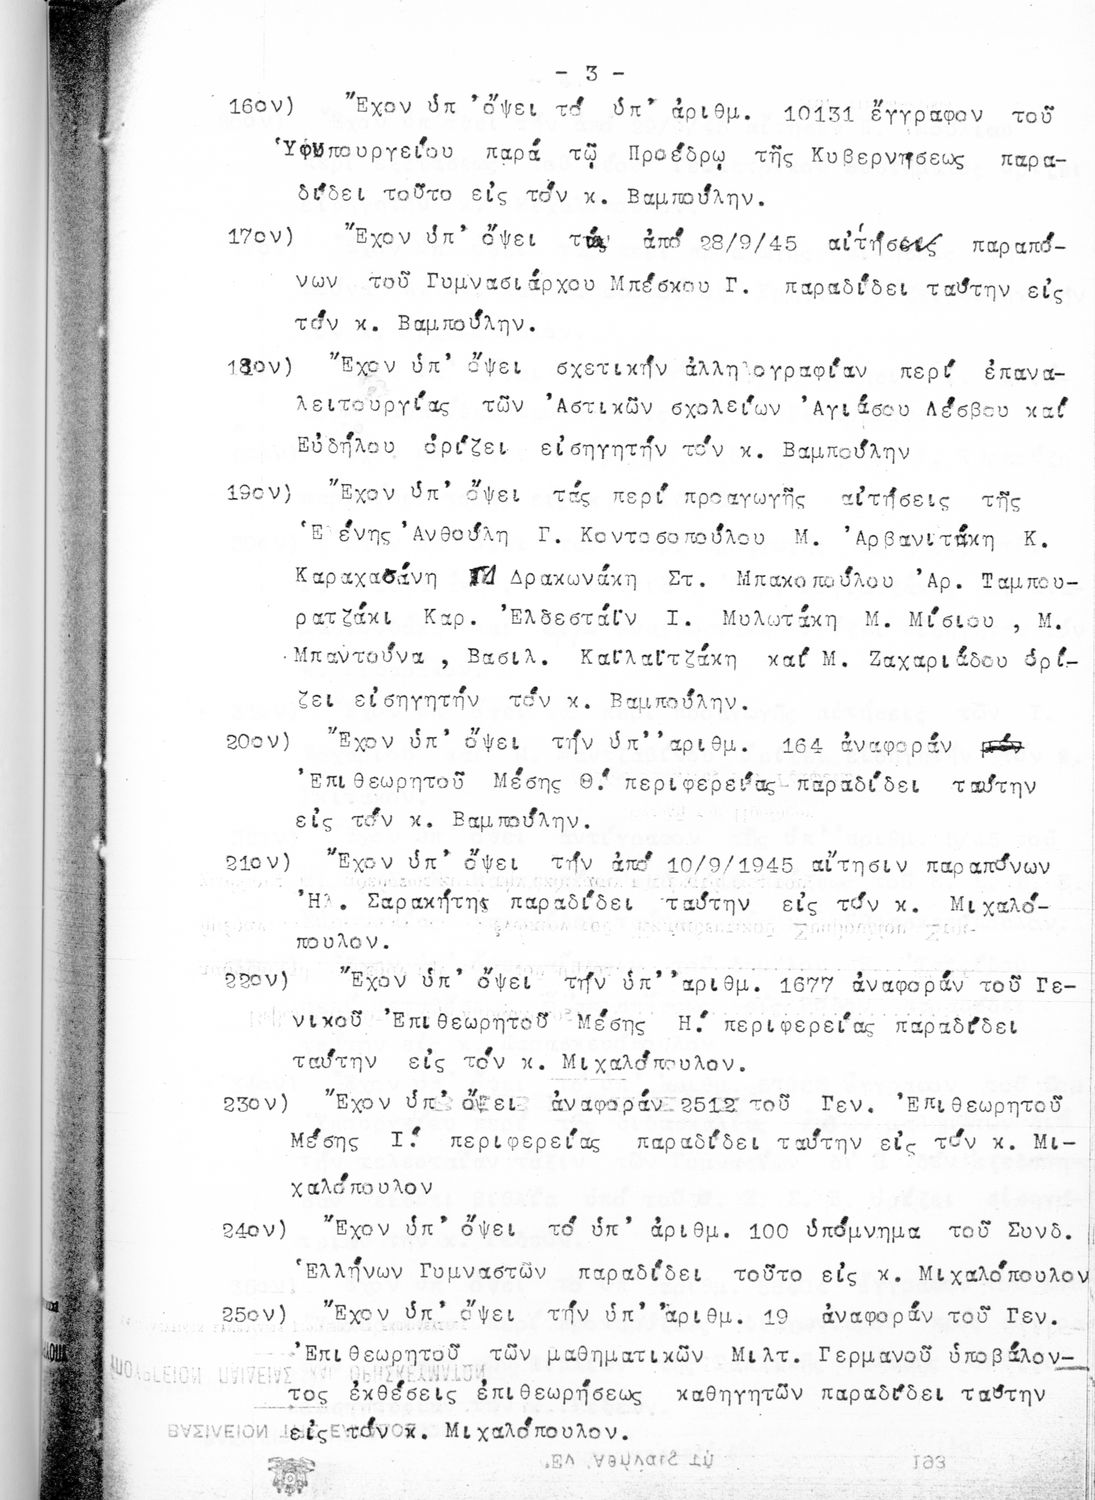 - 3 -
16ον) Ἔχον ὑπ' ὄψει τό ὑπ' ἀριθμ. 10131 ἔγγραφον τοῦ
Ὑφυπουργείου παρά τῷ Προέδρῳ τῆς Κυβερνήσεως παρα-
δίδει τοῦτο εἰς τόν κ. Βαμπούλην.
17ον) Ἔχον ὑπ' ὄψει τάς ἀπό 28/9/45 αἰτήσεις παραπό-
νων τοῦ Γυμνασιάρχου Μπέσκου Γ. παραδίδει ταύτην εἰς
τόν κ. Βαμπούλην.
18ον) Ἔχον ὑπ' ὄψει σχετικήν ἀλληλογραφίαν περί ἐπανα-
λειτουργίας τῶν Ἀστικῶν σχολείων Ἀγιάσου Λέσβου καί
Εὐδήλου ὁρίζει εἰσηγητήν τόν κ. Βαμπούλην
19ον) Ἔχον ὑπ' ὄψει τάς περί προαγωγῆς αἰτήσεις τῆς
Ἑλένης Ἀνθούλη Γ. Κοντοσοπούλου Μ. Ἀρβανιτάκη Κ.
Καραχασάνη Δρακωνάκη Στ. Μπακοπούλου Ἀρ. Ταμπου-
ρατζάκι Καρ. Ἐλδεσταΐν Ι. Μυλωτάκη Μ. Μίσιου , Μ.
Μπαντούνα , Βασιλ. Καϊλαϊτζάκη καί Μ. Ζαχαριάδου ὁρί-
ζει εἰσηγητήν τόν κ. Βαμπούλην.
20ον) Ἔχον ὑπ' ὄψει τήν ὑπ' ἀριθμ. 164 ἀναφοράν
Ἐπιθεωρητοῦ Μέσης Θ! περιφερείας παραδίδει ταύτην
εἰς τόν κ. Βαμπούλην.
21ον) Ἔχον ὑπ' ὄψει τήν ἀπό 10/9/1945 αἴτησιν παραπόνων
Ἠλ. Σαρακήτης παραδίδει ταύτην εἰς τόν κ. Μιχαλό-
πουλον.
22ον) Ἔχον ὑπ' ὄψει τήν ὑπ' ἀριθμ. 1677 ἀναφοράν τοῦ Γε-
νικοῦ Ἐπιθεωρητοῦ Μέσης Η! περιφερείας παραδίδει
ταύτην εἰς τόν κ. Μιχαλόπουλον.
23ον) Ἔχον ὑπ' ὄψει ἀναφοράν 2512 τοῦ Γεν. Ἐπιθεωρητοῦ
Μέσης Ι! περιφερείας παραδίδει ταύτην εἰς τόν κ. Μι-
χαλόπουλον
24ον) Ἔχον ὑπ' ὄψει τό ὑπ' ἀριθμ. 100 ὑπόμνημα τοῦ Συνδ.
Ἑλλήνων Γυμναστῶν παραδίδει τοῦτο εἰς κ. Μιχαλόπουλον
25ον) Ἔχον ὑπ' ὄψει τήν ὑπ' ἀριθμ. 19 ἀναφοράν τοῦ Γεν.
Ἐπιθεωρητοῦ τῶν μαθηματικῶν Μιλτ. Γερμανοῦ ὑποβάλον-
τος ἐκθέσεις ἐπιθεωρήσεως καθηγητῶν παραδίδει ταύτην
εἰς τόν κ. Μιχαλόπουλον.